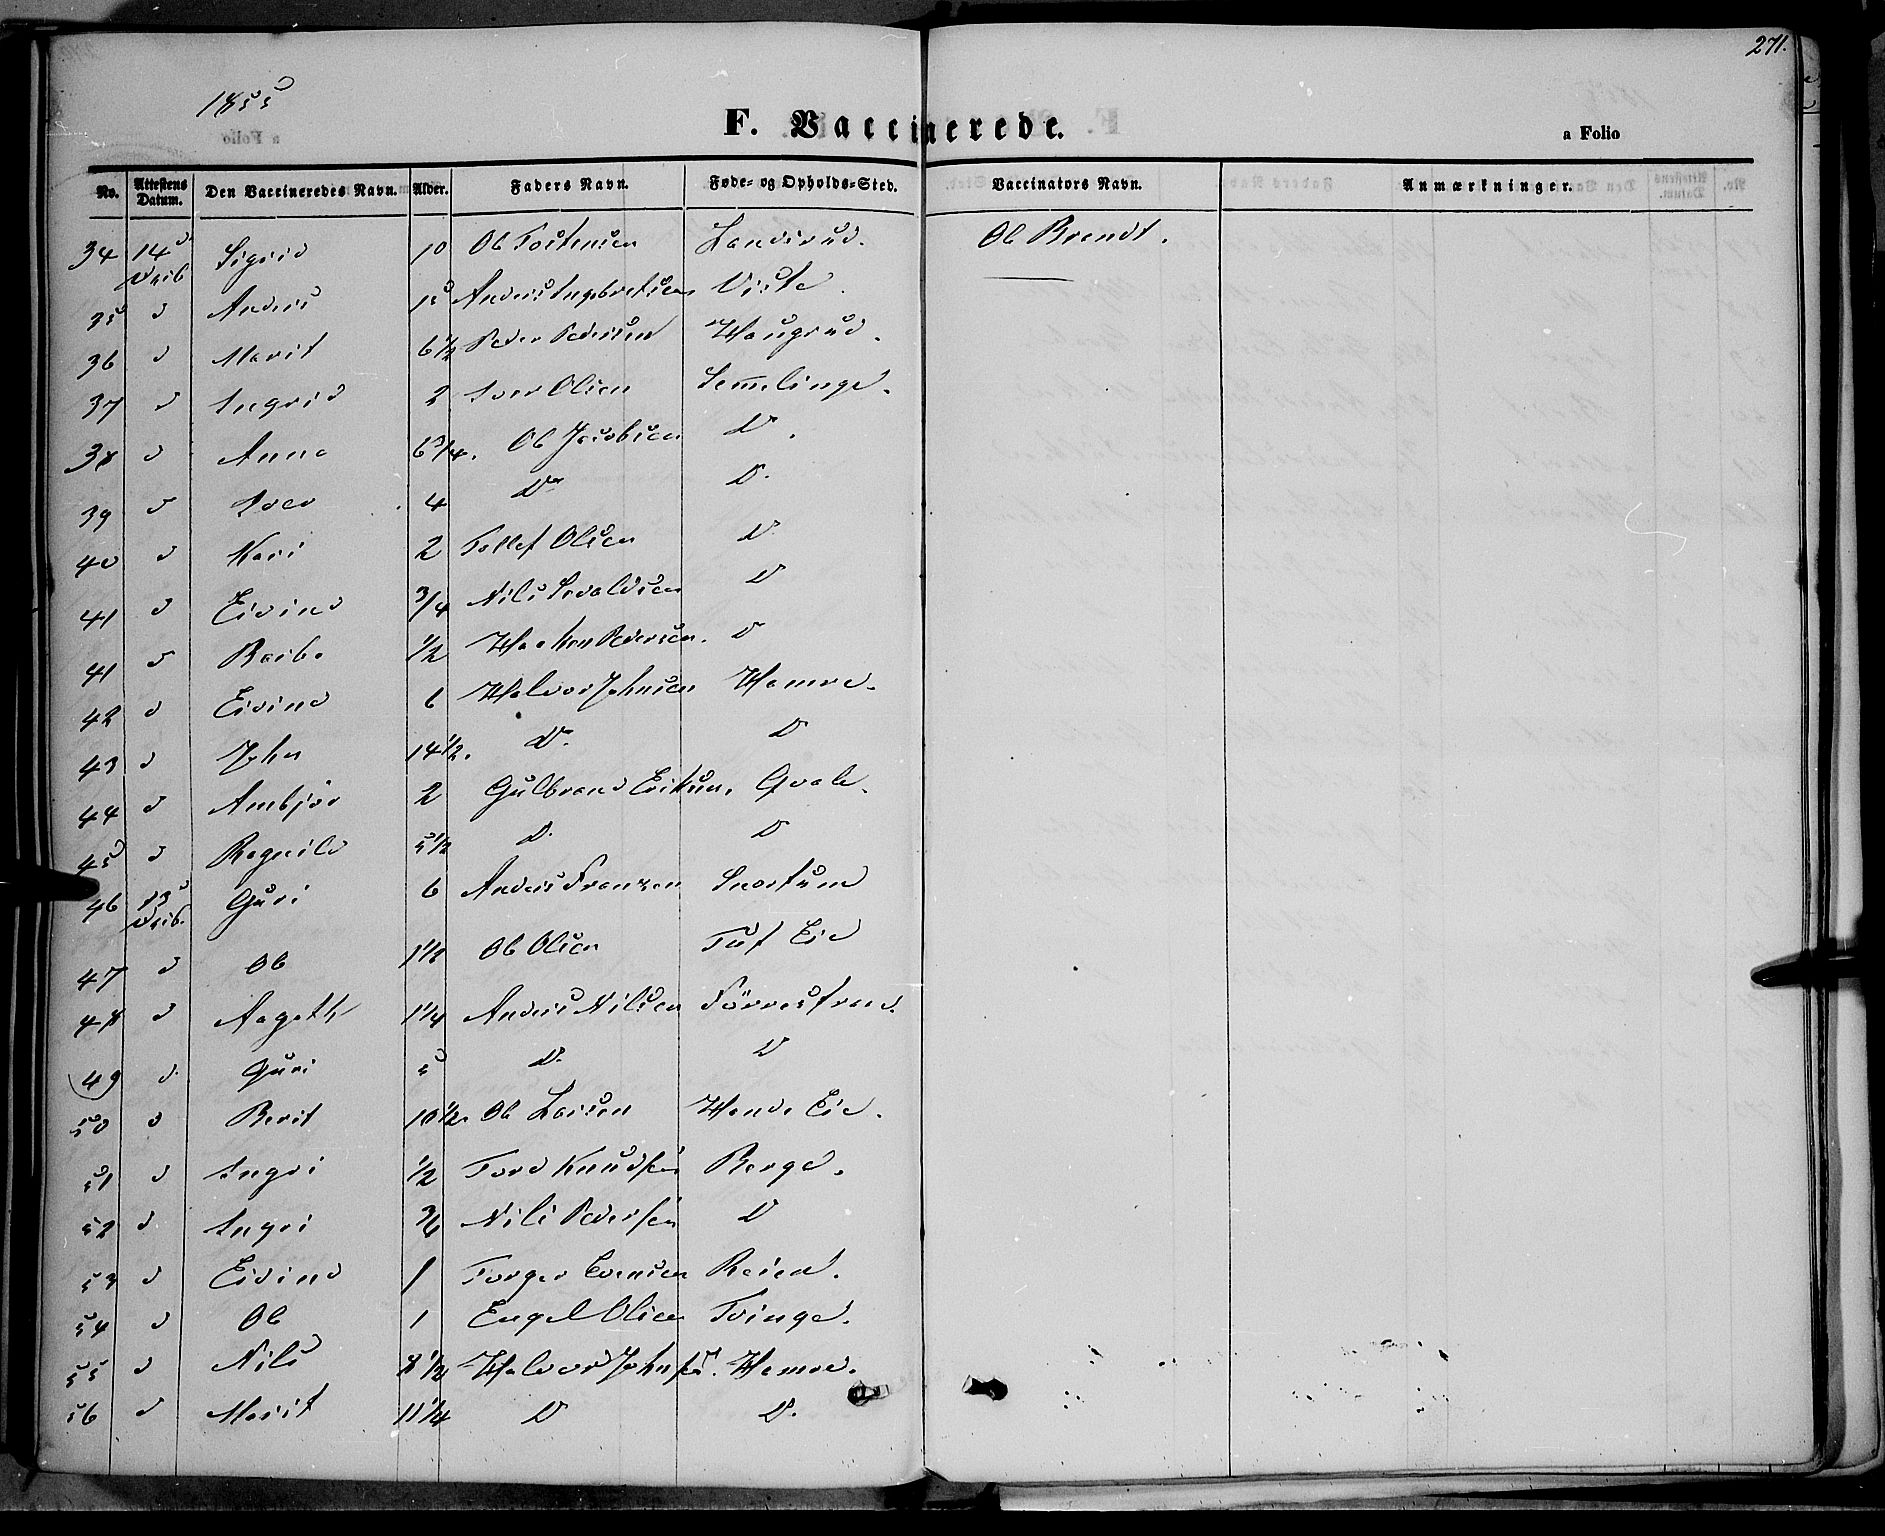 271.
1855
F. Vaccinerede.
a Folio
No. Attestens Datum. Den Vaccineredes Navn. Alder. Faders Navn. Føde- og Opholds-Sted. Vaccinators Navn. Anmærkninger.
34 14 Sigrid 10 Ole Tostensen Landsrud. Ole Brandt.
35 d Anders 15 Anders Ingebretsen Viste.
36 d Marit 6 1/2 Peder Pedersen Haugrud.
37 d Ingrid 2 Iver Olsen Semelinge.
38 d Anne 6 3/4. Ole Jacobsen D.
39 d Iver 4 D D.
40 d Kari 2 Tollef Olsen D
41 d Eivind 3/4 Nils D
41 d Barbo 1/2 Haaken Pedersen. D
42 d Eivind 6 Halvor Johnsen Hamre.
43 d John 14 1/2. D. D
44 d Ambjør 2 Gulbrand Eriksen. Qvale.
45 d Ragnild 5 1/2 D. D
46 Guri 6 Anders Franzen Snortum
47 d Ole 1 1/2 Ole Olsen Tuf Eie
48 d Aagoth 1 1/4 Anders Nilsen
49 d. Guri 5 D. D
50 d Berit 10 1/2. Ole Larsen Hande Eie.
51 d Ingri 1/2 Tord Knudsen Berge.
52 d Ingri Nils Pedersen D
53 d Eivind 1 Torger Evensen Reien.
54 d Ole 1 Engel Olsen Tvinge.
55 d Nils 8 1/2 Halvor Johnsen. Hamre.
56 d Marit 11 1/4 D D.